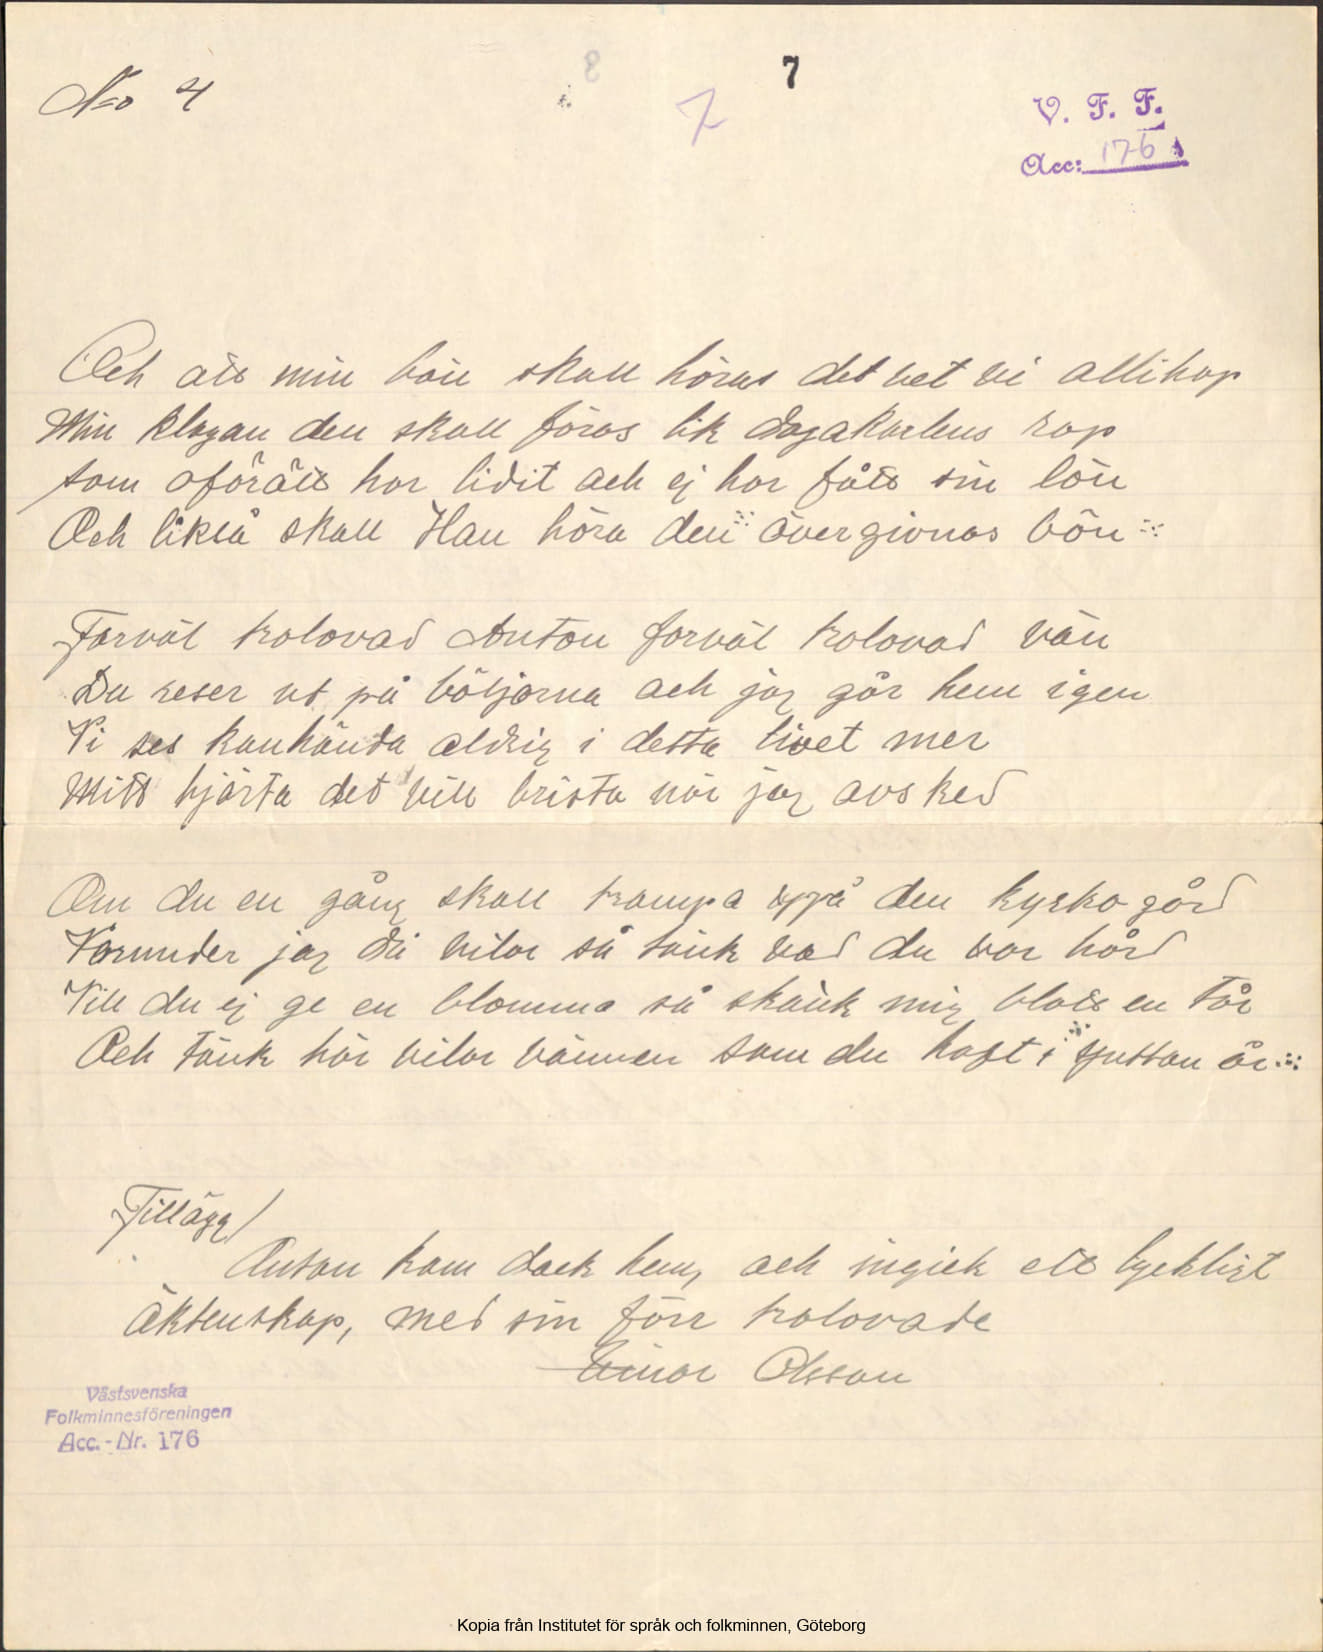 No 4
7
7
V. F. F.
Acc: 176
Och att min bön skall höras det vet vi allihop
Min klagan den skall föras lik dagakarlens rop
som oförätt har lidit och ej har fått sin lön
Och likså skall Han höra den övergivnas bön
Farväl trolovad Anton farväl trolovad vän
Du reser ut på böljorna och jag går hem igen
Vi ses kanhända aldrig i detta livet mer
Mitt hjärta det vill brista när jag avsked
Om du en gång skall trampa uppå den kyrko gård
Varunder jag då vilar så tänk vad du var hård
Vill du ej ge en blomma så skänk mig blott en tår
Och tänk här vilar vännen som du haft i sjutton år
Tillägg/
Anton kom dock hem, och ingick ett lyckligt
äktenskap, med sin förr trolovade
Einar Olsson
Västsvenska
Folkminnesföreningen
Acc.-Nr. 176
Kopia från Institutet för språk och folkminnen, Göteborg